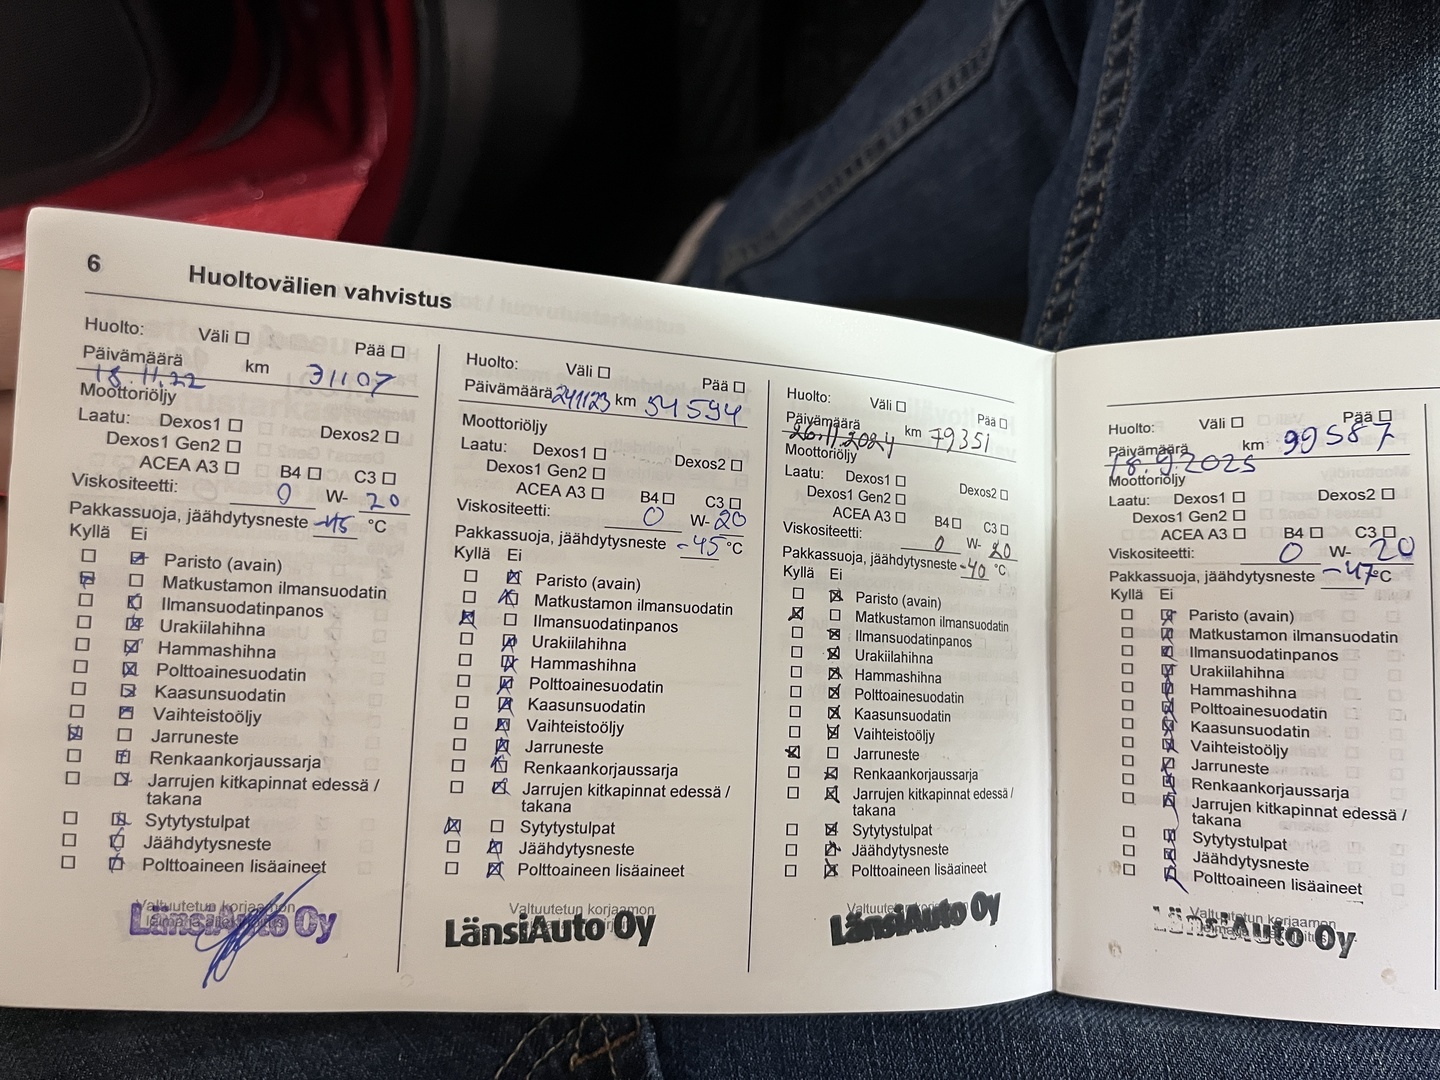 6
Huoltovälien vahvistus
Huolto: Väli ☐ Pää ☐
Päivämäärä km 31107
18.11.22
Moottoriöljy
Laatu: Dexos1 ☐ Dexos2 ☐
Dexos1 Gen2 ☐
ACEA A3 ☐ B4 ☐ C3 ☐
Viskositeetti: 0 W- 20
Pakkassuoja, jäähdytysneste -45 °C
Kyllä Ei
☐ ☒ Paristo (avain)
☒ ☐ Matkustamon ilmansuodatin
☐ ☒ Ilmansuodatinpanos
☐ ☒ Urakiilahihna
☐ ☒ Hammashihna
☐ ☒ Polttoainesuodatin
☐ ☒ Kaasunsuodatin
☐ ☒ Vaihteistoöljy
☒ ☐ Jarruneste
☐ ☒ Renkaankorjaussarja
☐ ☒ Jarrujen kitkapinnat edessä /
takana
☐ ☒ Sytytystulpat
☐ ☒ Jäähdytysneste
☐ ☒ Polttoaineen lisäaineet
Valtuutetun korjaamon
LänsiAuto Oy
Huolto: Väli ☐ Pää ☐
Päivämäärä 241123 km 54594
Moottoriöljy
Laatu: Dexos1 ☐ Dexos2 ☐
Dexos1 Gen2 ☐
ACEA A3 ☐ B4 ☐ C3 ☐
Viskositeetti: 0 W- 20
Pakkassuoja, jäähdytysneste -45 °C
Kyllä Ei
☐ ☒ Paristo (avain)
☐ ☒ Matkustamon ilmansuodatin
☒ ☐ Ilmansuodatinpanos
☐ ☒ Urakiilahihna
☐ ☒ Hammashihna
☐ ☒ Polttoainesuodatin
☐ ☒ Kaasunsuodatin
☐ ☒ Vaihteistoöljy
☐ ☒ Jarruneste
☐ ☒ Renkaankorjaussarja
☐ ☒ Jarrujen kitkapinnat edessä /
takana
☒ ☐ Sytytystulpat
☐ ☒ Jäähdytysneste
☐ ☒ Polttoaineen lisäaineet
Valtuutetun korjaamon
LänsiAuto Oy
Huolto: Väli ☐ Pää ☐
Päivämäärä km 79351
26.11.2024
Moottoriöljy
Laatu: Dexos1 ☐ Dexos2 ☐
Dexos1 Gen2 ☐
ACEA A3 ☐ B4 ☐ C3 ☐
Viskositeetti: 0 W- 20
Pakkassuoja, jäähdytysneste -40 °C
Kyllä Ei
☐ ☒ Paristo (avain)
☒ ☐ Matkustamon ilmansuodatin
☐ ☒ Ilmansuodatinpanos
☐ ☒ Urakiilahihna
☐ ☒ Hammashihna
☐ ☒ Polttoainesuodatin
☐ ☒ Kaasunsuodatin
☐ ☒ Vaihteistoöljy
☒ ☐ Jarruneste
☐ ☒ Renkaankorjaussarja
☐ ☒ Jarrujen kitkapinnat edessä /
takana
☐ ☒ Sytytystulpat
☐ ☒ Jäähdytysneste
☐ ☒ Polttoaineen lisäaineet
LänsiAuto Oy
Huolto: Väli ☐ Pää ☐
Päivämäärä km 99587
18.9.2025
Moottoriöljy
Laatu: Dexos1 ☐ Dexos2 ☐
Dexos1 Gen2 ☐
ACEA A3 ☐ B4 ☐ C3 ☐
Viskositeetti: 0 W- 20
Pakkassuoja, jäähdytysneste -47 °C
Kyllä Ei
☐ ☒ Paristo (avain)
☐ ☒ Matkustamon ilmansuodatin
☐ ☒ Ilmansuodatinpanos
☐ ☒ Urakiilahihna
☐ ☒ Hammashihna
☐ ☒ Polttoainesuodatin
☐ ☒ Kaasunsuodatin
☐ ☒ Vaihteistoöljy
☐ ☒ Jarruneste
☐ ☒ Renkaankorjaussarja
☐ ☒ Jarrujen kitkapinnat edessä /
takana
☐ ☒ Sytytystulpat
☐ ☒ Jäähdytysneste
☐ ☒ Polttoaineen lisäaineet
Valtuutetun korjaamon
LänsiAuto Oy